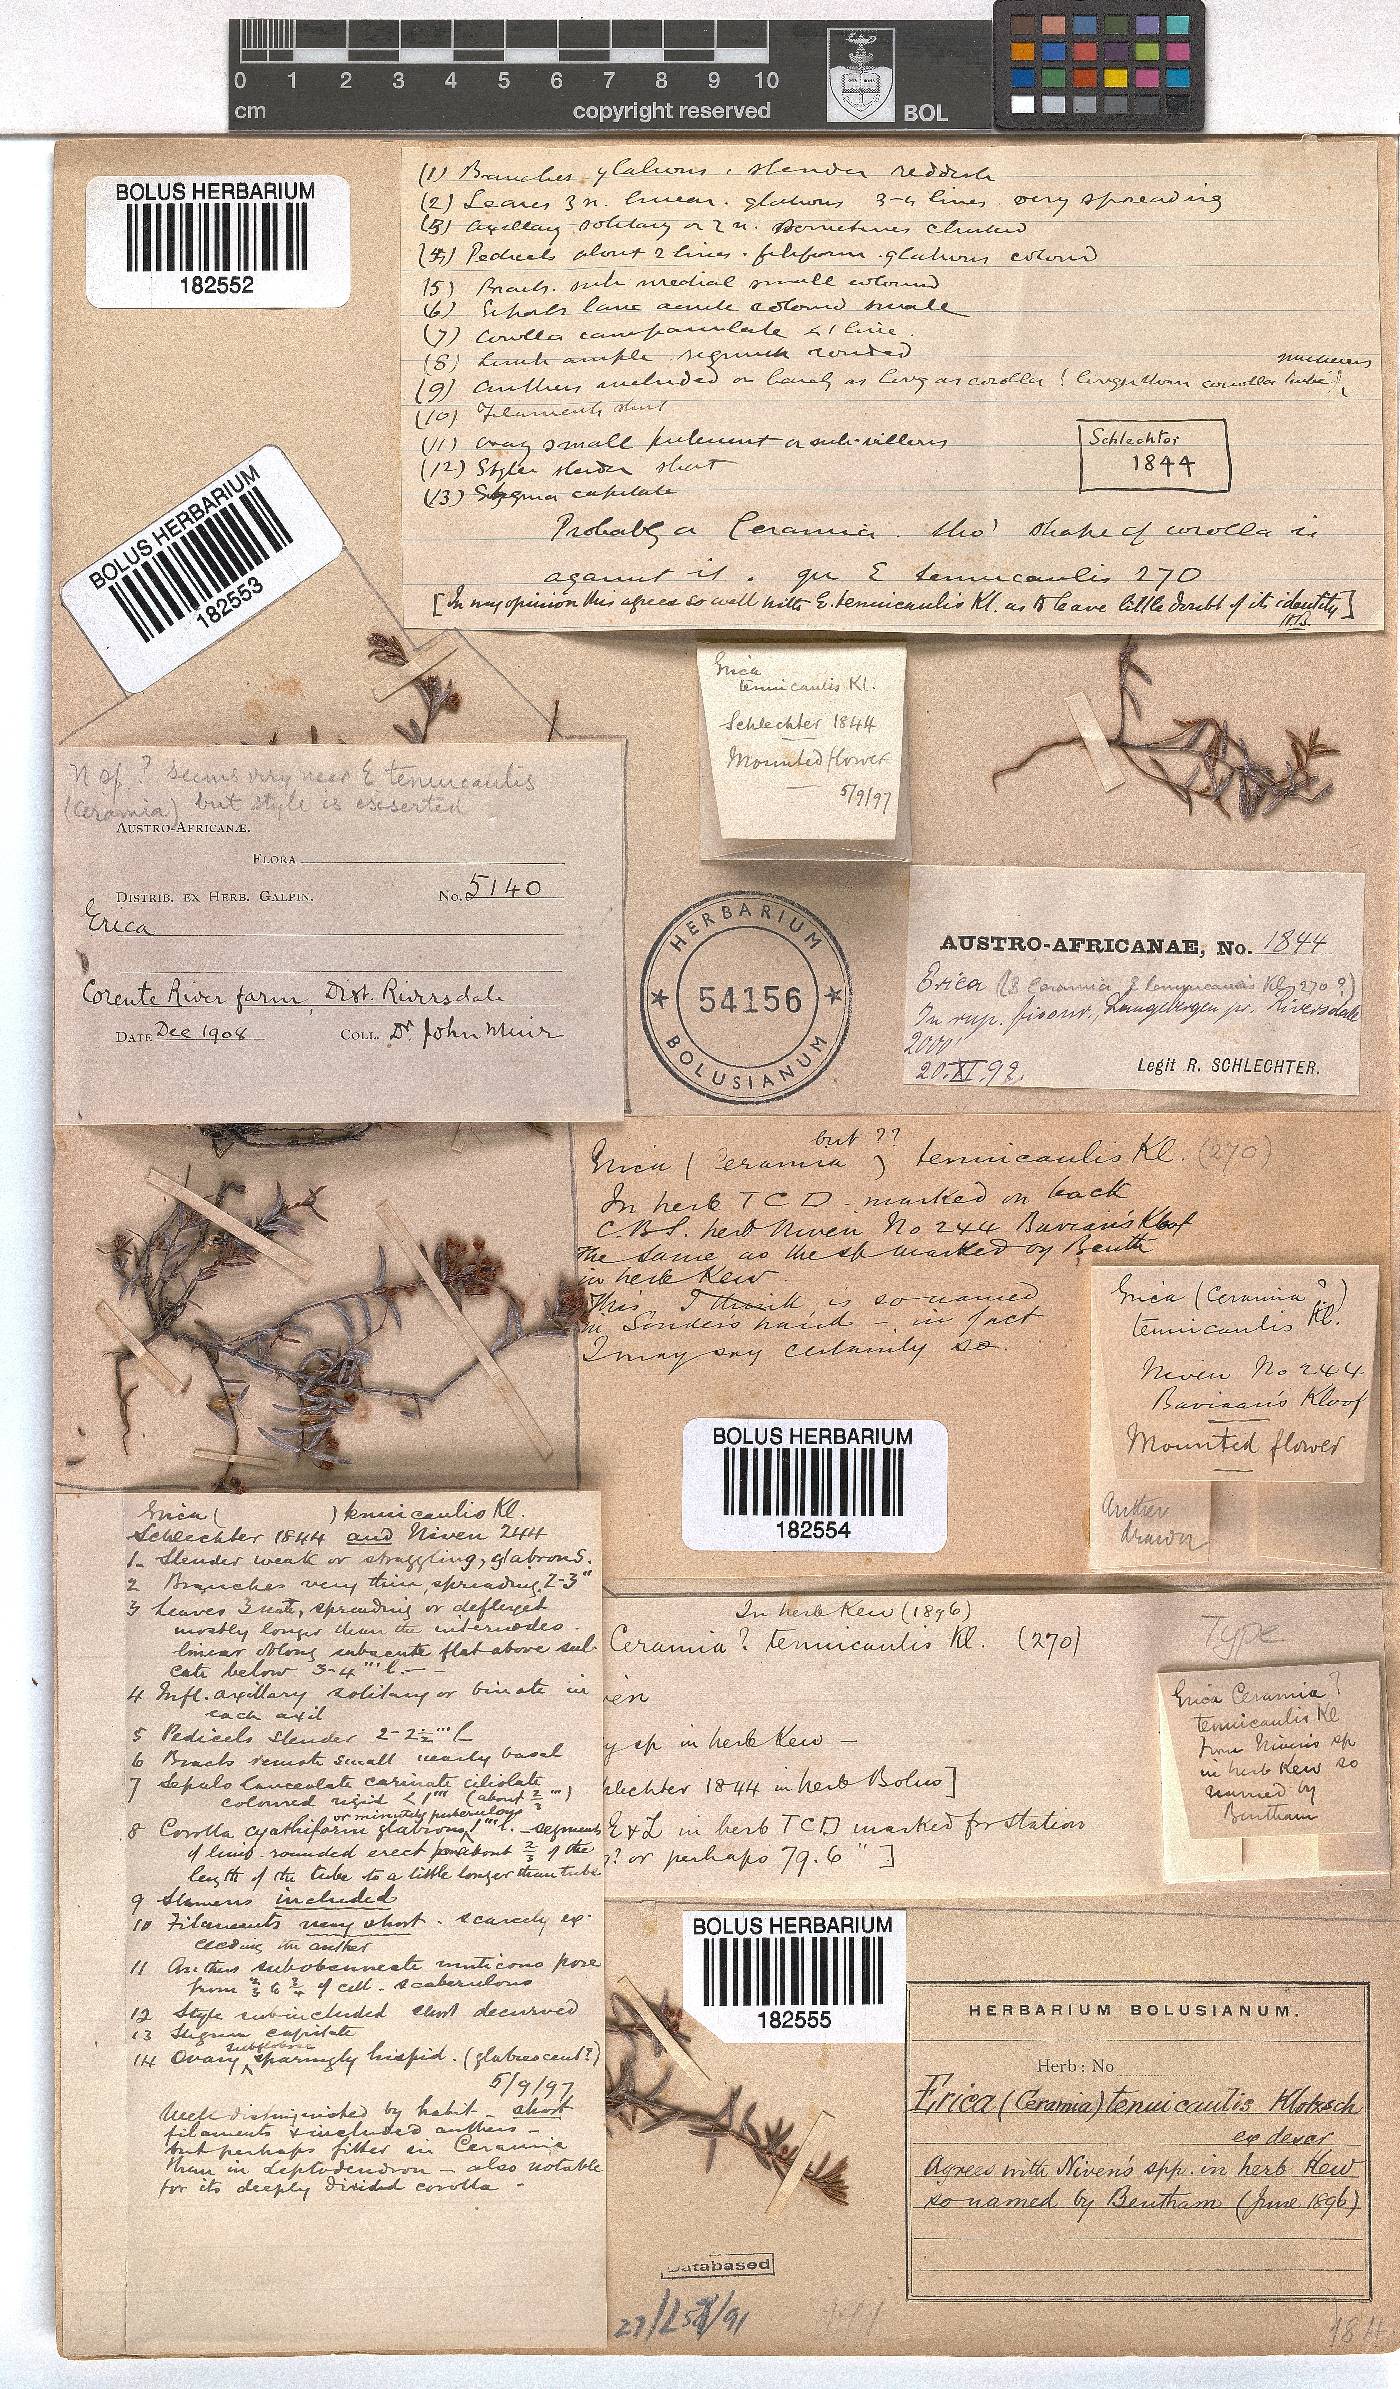 0 1 2 3 4 5 6 7 8 9 10
cm copyright reserved BOL
BOLUS HERBARIUM
182552
(1) Branches glabrous, slender reddish
(2) Leaves 3 n. linear. glabrous 3-4 lines very spreading
(3) axillary solitary or 2 n. sometimes clustered
(4) Pedicels about 2 lines. filiform. glabrous coloured
(5) Bracts. sub medial small coloured
(6) Sepals lanc acute coloured small
(7) Corolla campanulate <1 line.
(8) Limb ample segments rounded
mucherers
(9) Anthers included or barely as long as corolla (longer than corolla tube)
(10) Filaments short
(11) ovary small pubescent or sub-villous
(12) Style slender short
(13) Stigma capitate
Schlechter
1844
Probably a Ceramia. tho' shape of corolla is
against it. qu E tenuicaulis 270
[In my opinion this agrees so well with E. tenuicaulis Kl. as to leave little doubt of its identity]
BOLUS HERBARIUM
182553
Erica
tenuicaulis Kl.
Schlechter 1844
Mounted flower
5/9/97
N sp.? Seems very near E tenuicaulis
(Ceramia) but style is exserted
AUSTRO-AFRICANÆ.
FLORA
DISTRIB. EX HERB. GALPIN. No. 5140
Erica
Corente River farm, Dist. Riversdale
DATE Dec 1908 COLL. Dr. John Muir
HERBARIUM
54156
BOLUSIANUM
AUSTRO-AFRICANAE, No. 1844
Erica (§ Ceramia E tenuicaulis Kl. 270?)
In rup. fissur., Langebergen pr. Riversdale
2000'
20.XI.92.
Legit R. SCHLECHTER.
but ??
Erica (Ceramia) tenuicaulis Kl. (270)
In herb TCD marked on back
C.B.S. herb Niven No 244 Bavian's Kloof
the same as the sp marked by Benth
in herb Kew.
This, I think, is so named
in Sonder's hand - in fact
I may say certainly so.
Erica (Ceramia?)
tenuicaulis Kl.
Niven No 244
Baviaan's Kloof
Mounted flower
Anther
drawn
BOLUS HERBARIUM
182554
Erica ( ) tenuicaulis Kl.
Schlechter 1844 and Niven 244
1- Slender weak or straggling, glabrous.
2 Branches very thin, spreading 2-3"
3 Leaves 3 nate, spreading or deflexed
mostly longer than the internodes.
linear oblong subacute flat above sul-
cate below 3-4''' l.
4 Infl. axillary solitary or binate in
each axil
5 Pedicels slender 2-2½''' l
6 Bracts remote small nearly basal
7 Sepals lanceolate carinate ciliolate
coloured rigid <1''' (about ⅔''')
or minutely puberulous
8 Corolla cyathiform glabrous 1''' l. - segments
of limb rounded erect from about ⅔ of the
length of the tube to a little longer than tube
9 Stamens included
10 Filaments very short. scarcely ex-
ceeding the anther
11 Anthers subobcuneate muticous pore
from ⅔ to ¾ of cell. scaberulous
12 Style subincluded short decurved
13 Stigma capitate
subglobose
14 Ovary sparingly hispid. (glabrescent?)
5/9/97
Well distinguished by habit - short
filaments & included anthers -
but perhaps fitter in Ceramia
than in Leptodendron - also notable
for its deeply divided corolla -
In herb Kew (1896)
Ceramia? tenuicaulis Kl. (270)
ven
y sp in herb Kew -
hlechter 1844 in herb Bolus]
E & Z in herb TCD marked for station
? or perhaps 79.6"]
Type
Erica Ceramia?
tenuicaulis Kl
from Niven's sp
in herb Kew so
named by
Bentham
BOLUS HERBARIUM
182555
HERBARIUM BOLUSIANUM.
Herb: No
Erica (Ceramia) tenuicaulis Klotzsch
ex descr
Agrees with Niven's spp. in herb Kew
so named by Bentham (June 1896)
Databased